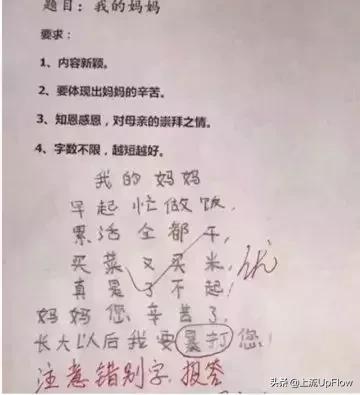 题目：我的妈妈
要求：
1、内容新颖。
2、要体现出妈妈的辛苦。
3、知恩感恩，对母亲的崇拜之情。
4、字数不限，越短越好。
我的妈妈
早起忙做饭，
累活全都干，
买菜又买米，
优
真是了不起！
妈妈您辛苦了，
长大以后我要暴打您！
注意错别字，报答
头条 @上流UpFlow